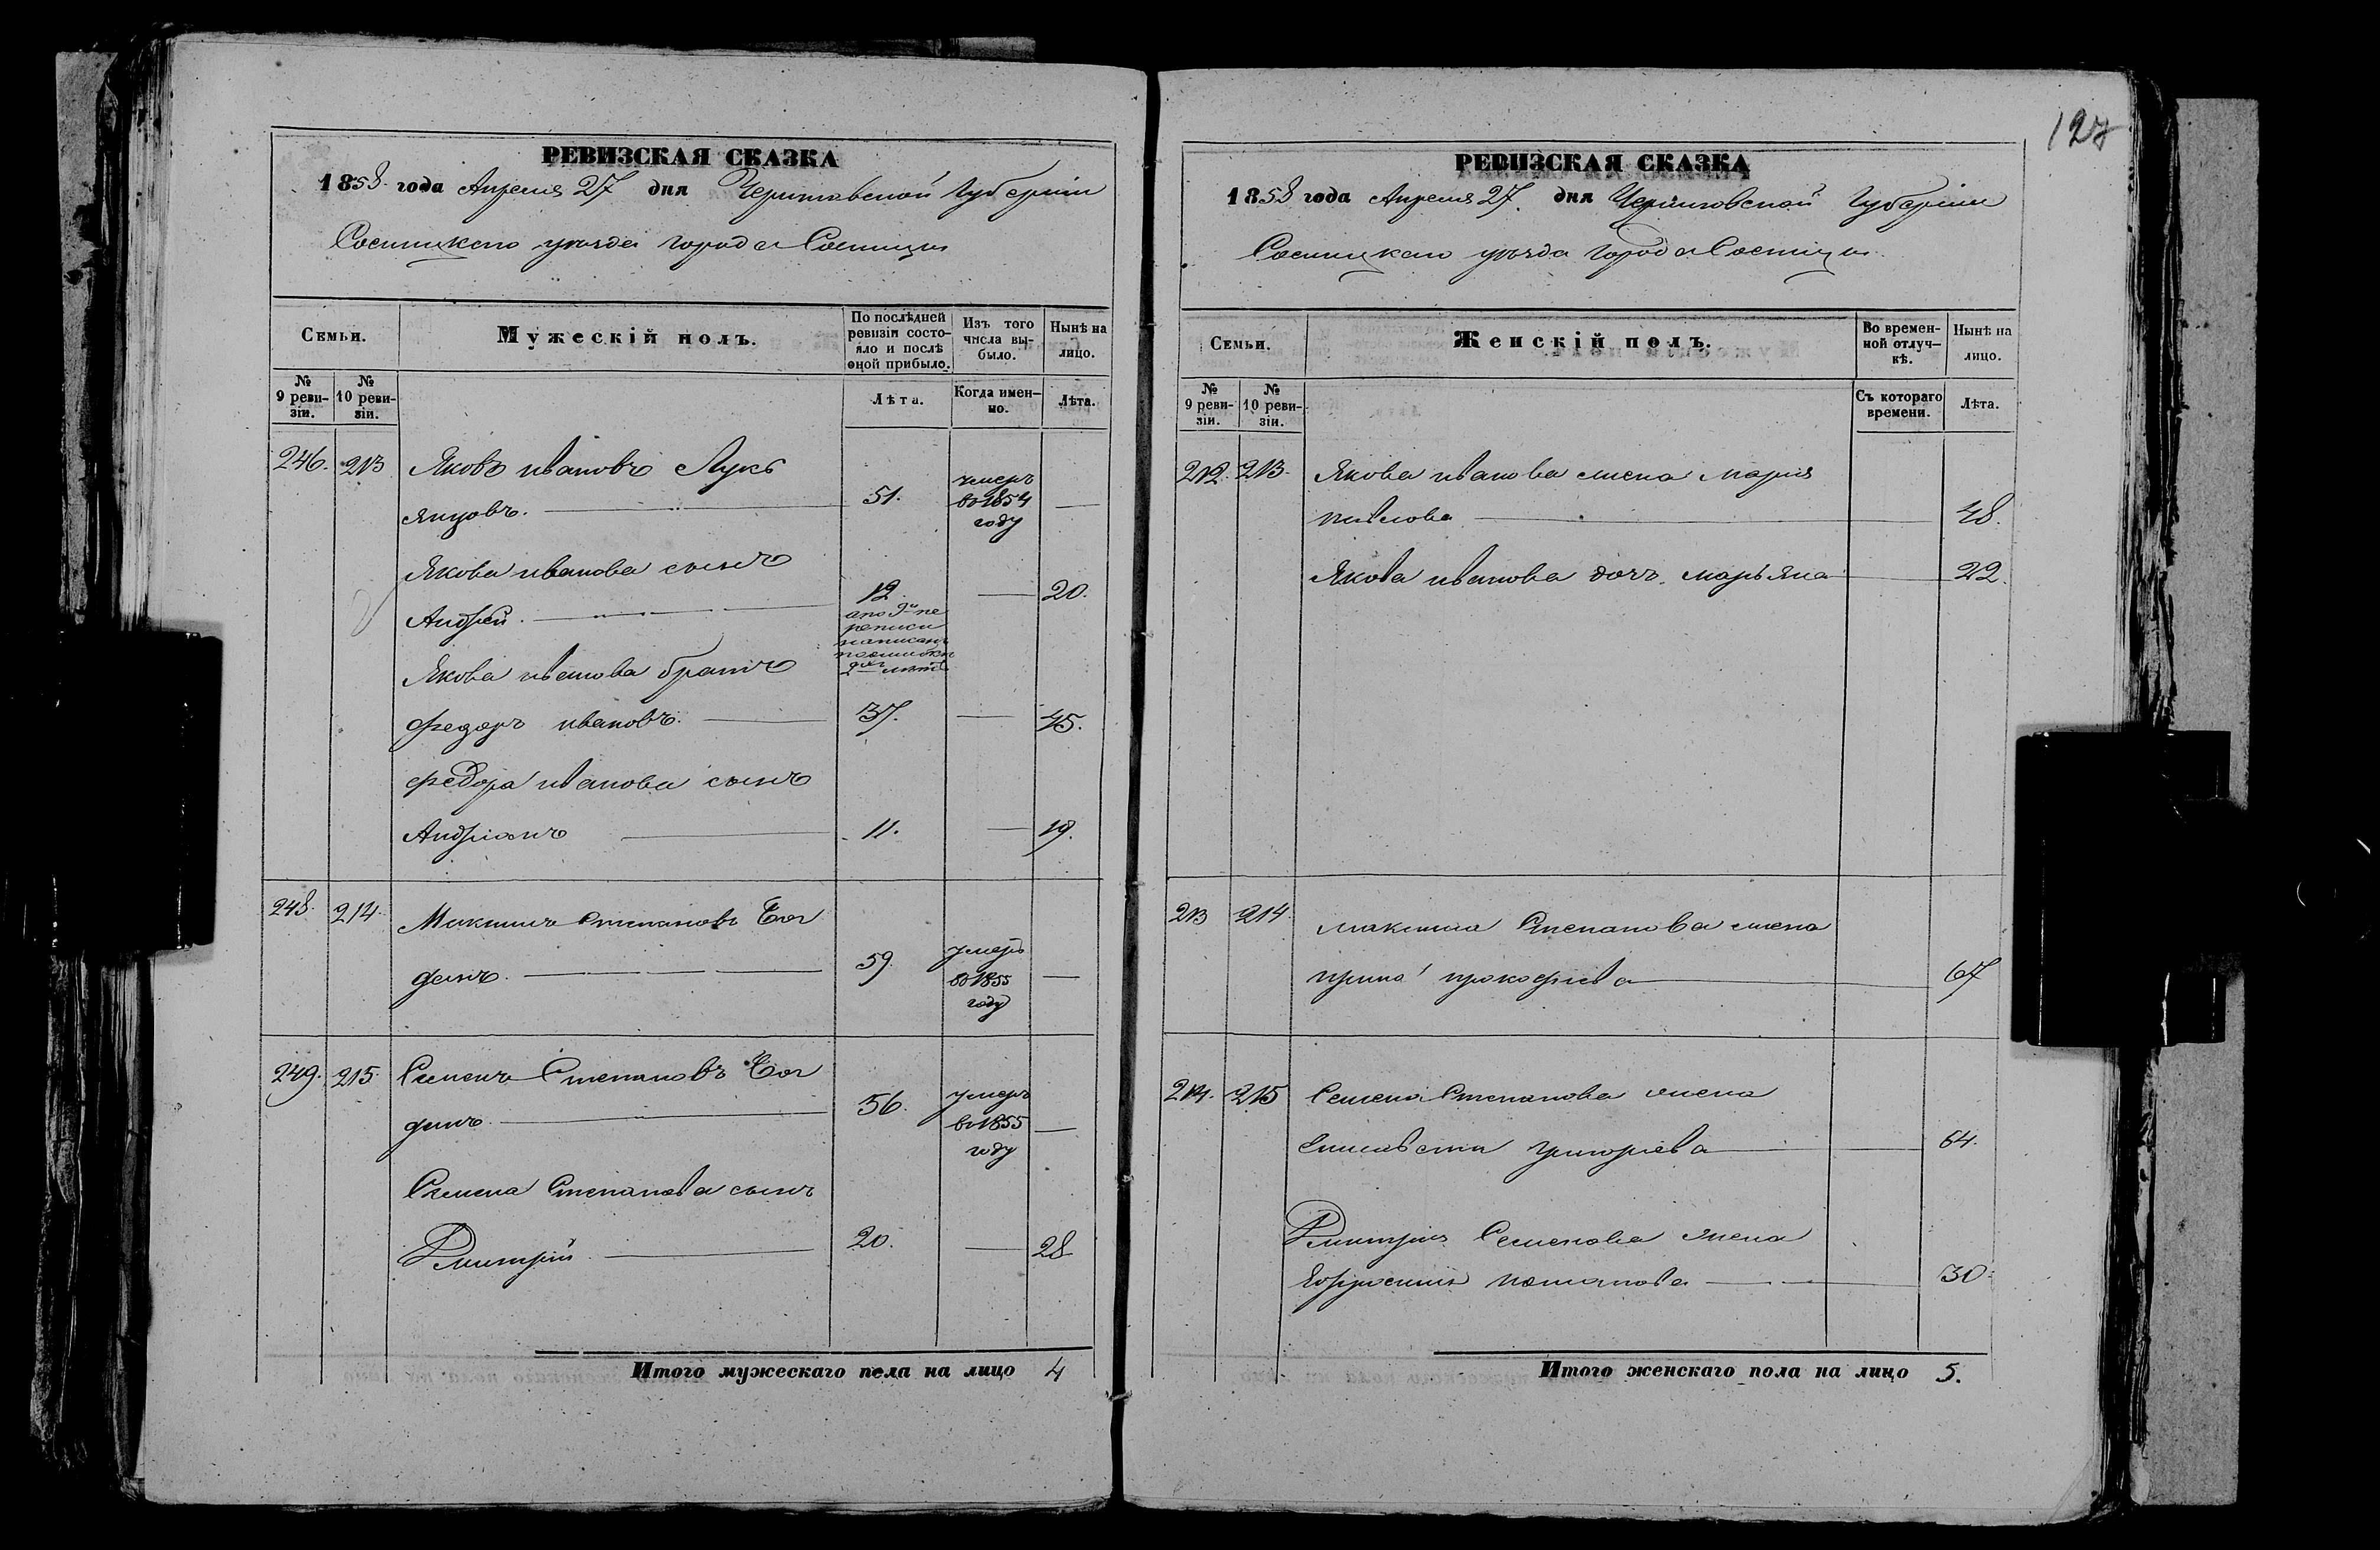 127
РЕВИЗСКАЯ СКАЗКА
1858 года Апреля 27 дня Черниговской Губернiи
Сосницкаго уѣзда города Сосницы
Семьи.
Мужескій полъ.
По послѣдней ревизіи состояло и послѣ оной прибыло.
Изъ того числа выбыло.
Нынѣ на лицо.
№ 9 ревизіи.
№ 10 ревизіи.
Лѣта.
Когда именно.
Лѣта.
246. 213 Яковъ ивановъ Лукь
янцовъ. 51. умеръ во 1854 году —
Якова иванова сынъ
Андрей. 12. — 20.
а по 9й пе
реписи
написанъ
Якова иванова братъ
федоръ ивановъ. 37. — 45.
федора иванова сынъ
Андріанъ 11. — 19.
248. 214. Максимъ Степановъ
динъ. 59. умеръ во 1855 году —
249. 215. Семенъ Степановъ
динъ 56. умеръ во 1855 году —
Семена Степанова сынъ
Дмитрій 20. — 28
Итого мужескаго пола на лицо 4
РЕВИЗСКАЯ СКАЗКА
1858 года Апреля 27. дня Черниговской Губерніи
Сосницкаго уѣзда города Сосницы.
Семьи.
Женскій полъ.
Во временной отлучкѣ.
Нынѣ на лицо.
№ 9 ревизіи.
№ 10 ревизіи.
Съ котораго времени.
Лѣта.
212. 213. Якова иванова жена мария
павлова 48.
Якова иванова дочъ марьяна 22.
213 214. максима Степанова жена
ирина прокофиева 67
214. 215 Семена Степанова жена
Елисавета григориева 64.
Дмитрия Семенова жена
Ефросиния 30.
Итого женскаго пола на лицо 5.